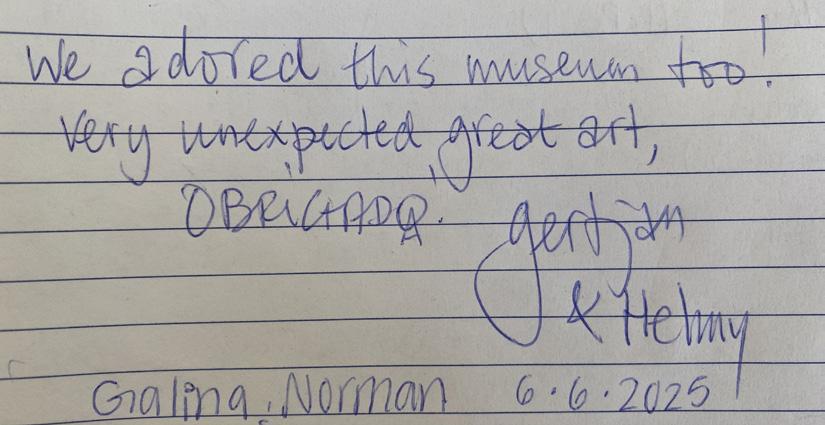 We adored this museum too!
Very unexpected great art,
OBRIGADA.
gertjan
& Helmy
Galina, Norman 6.6.2025